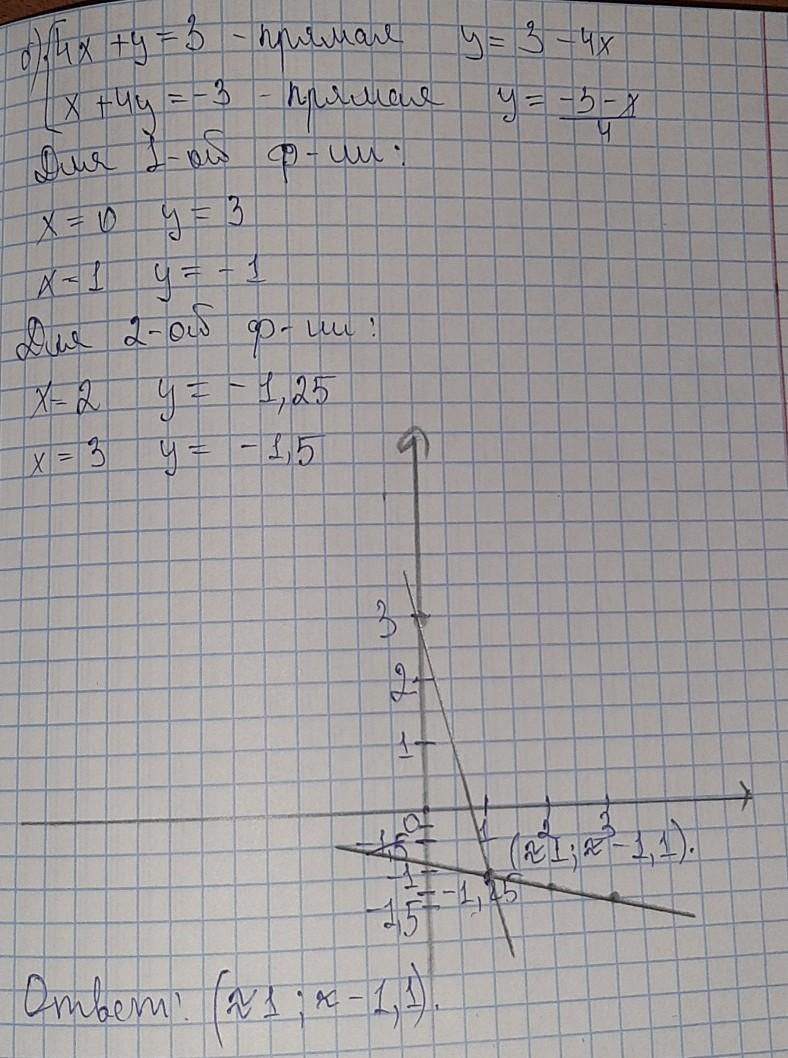 б) { 4x + y = 3 - прямая y = 3 - 4x
x + 4y = -3 - прямая y = (-3 - x)/4
Для 1-ой ф-ии:
x = 0 y = 3
x = 1 y = -1
Для 2-ой ф-ии:
x = 2 y = -1,25
x = 3 y = -1,5
3
2
1
0 1 2 3
(≈1; ≈-1,1).
-1
-1,25
-1,5
Ответ: (≈1; ≈-1,1).